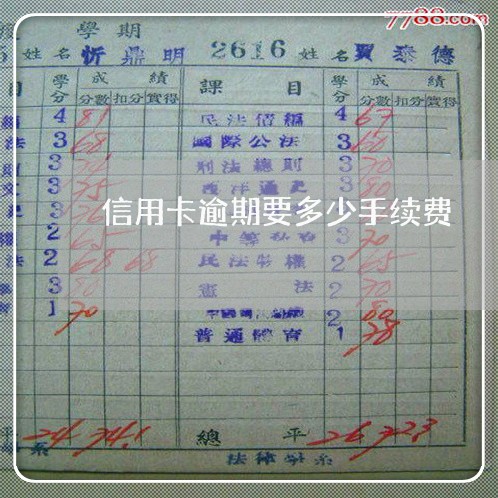 7788.com
學期
姓名 忻鼎明 2616 姓名 賈泰德
目 學分 成績 課目 學分 成績
分數 扣分 實得 分數 扣分 實得
4 81 民法債編 4 67
法 3 68 國際公法 3 60
3 刑法總則 3 70
3 75 西洋通史 3 80
信用卡逾期要多少手续费
2 65 3 70
法 2 68 68 民法物權 2 65
3 80 憲法 2 70
1 70 2 80
普通體育 1 78
平 24 74.1 總平 26 72.3
系 法律學系